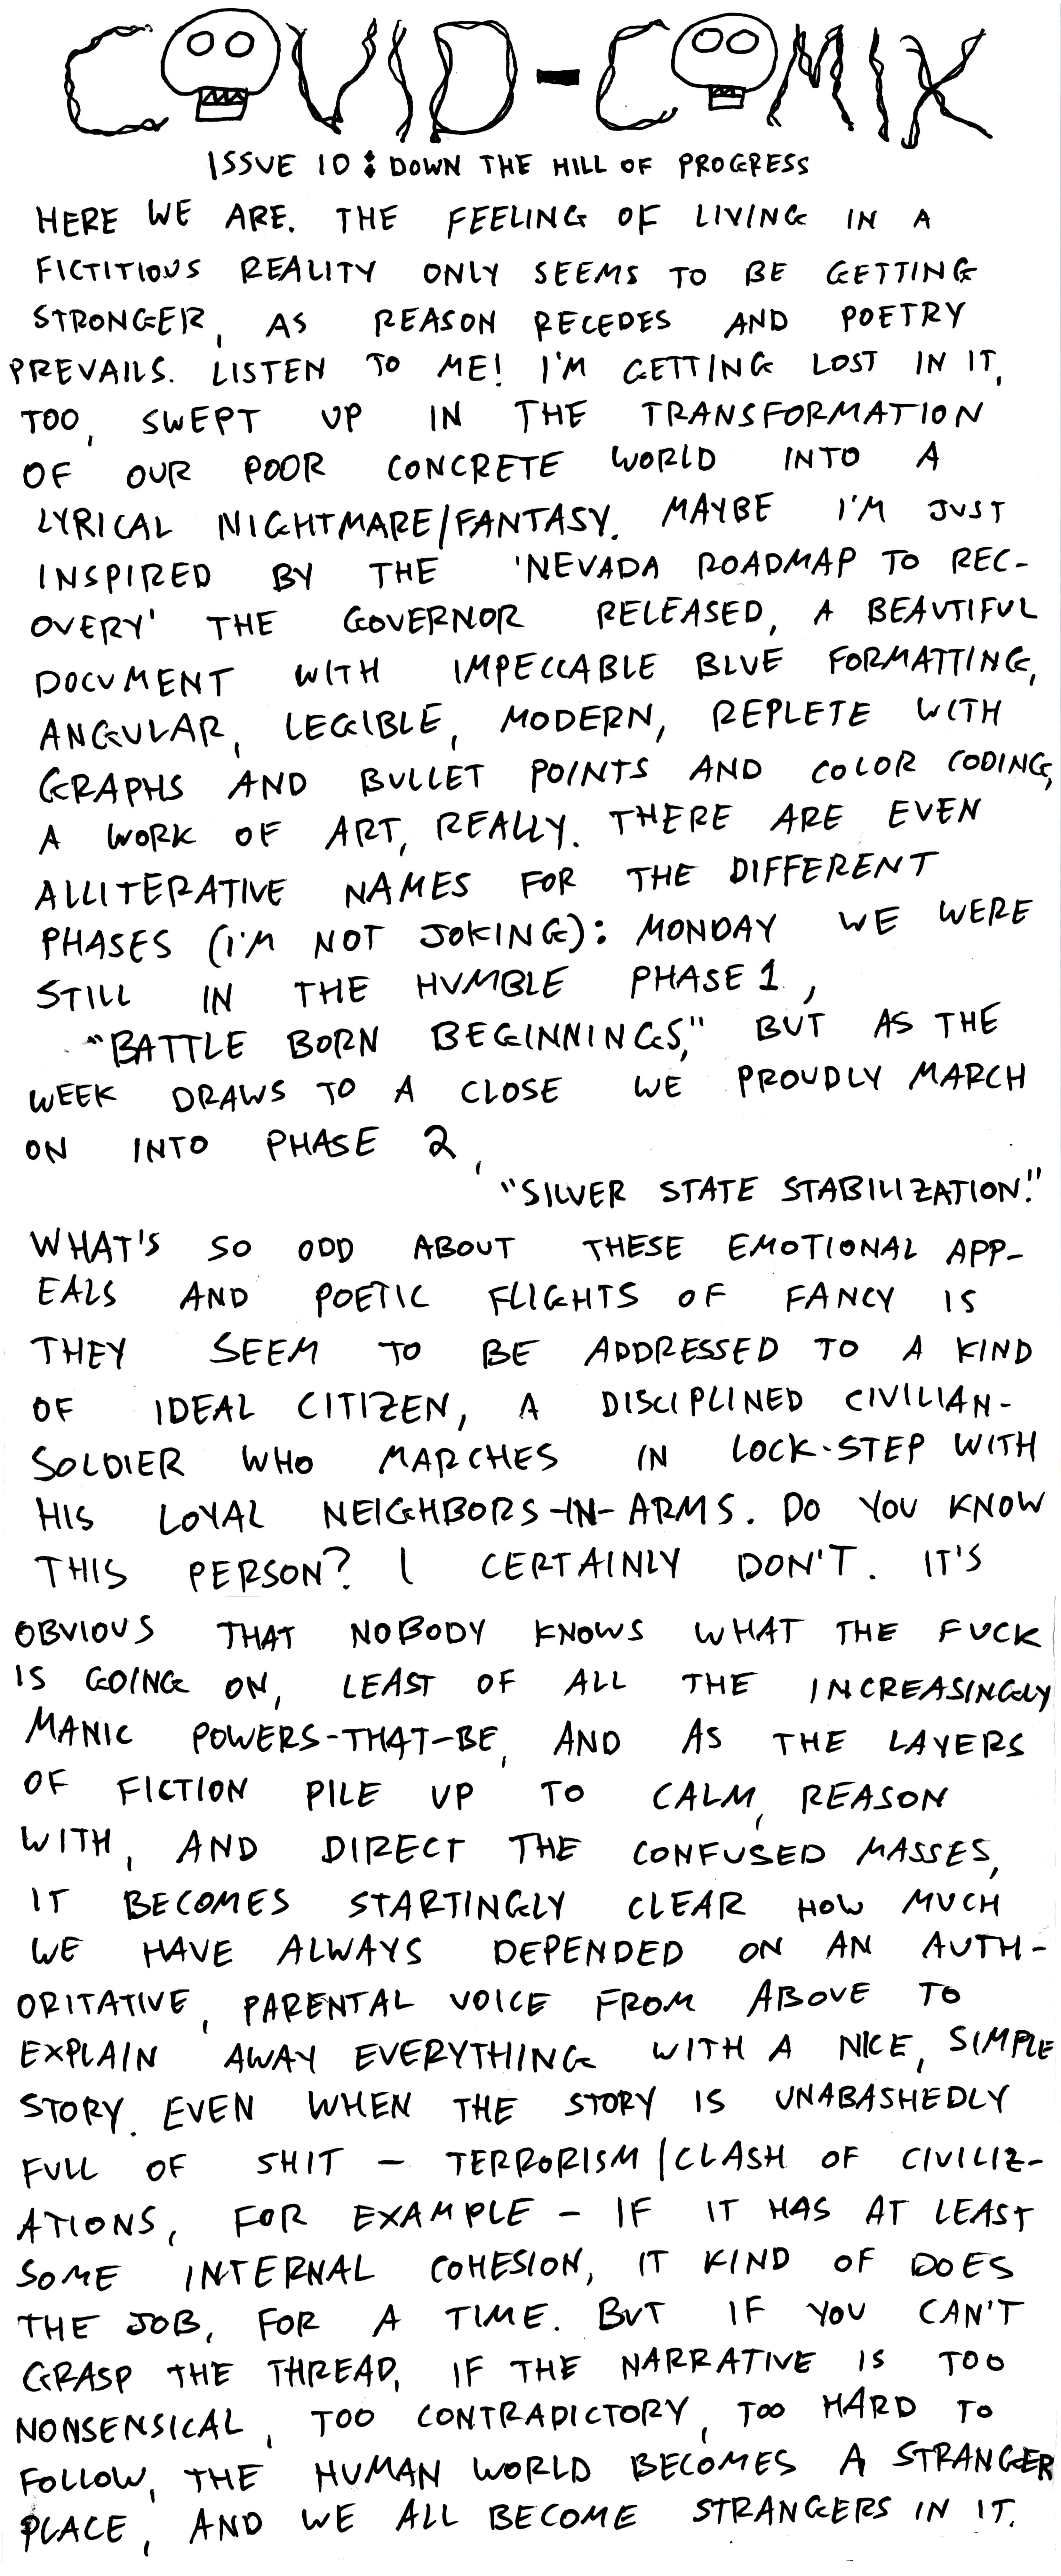 COVID-COMIX
ISSUE 10: DOWN THE HILL OF PROGRESS
HERE WE ARE. THE FEELING OF LIVING IN A
FICTITIOUS REALITY ONLY SEEMS TO BE GETTING
STRONGER, AS REASON RECEDES AND POETRY
PREVAILS. LISTEN TO ME! I'M GETTING LOST IN IT,
TOO, SWEPT UP IN THE TRANSFORMATION
OF OUR POOR CONCRETE WORLD INTO A
LYRICAL NIGHTMARE/FANTASY. MAYBE I'M JUST
INSPIRED BY THE 'NEVADA ROADMAP TO REC-
OVERY' THE GOVERNOR RELEASED, A BEAUTIFUL
DOCUMENT WITH IMPECCABLE BLUE FORMATTING,
ANGULAR, LEGIBLE, MODERN, REPLETE WITH
GRAPHS AND BULLET POINTS AND COLOR CODING,
A WORK OF ART, REALLY. THERE ARE EVEN
ALLITERATIVE NAMES FOR THE DIFFERENT
PHASES (I'M NOT JOKING): MONDAY WE WERE
STILL IN THE HUMBLE PHASE 1,
"BATTLE BORN BEGINNINGS," BUT AS THE
WEEK DRAWS TO A CLOSE WE PROUDLY MARCH
ON INTO PHASE 2,
"SILVER STATE STABILIZATION."
WHAT'S SO ODD ABOUT THESE EMOTIONAL APP-
EALS AND POETIC FLIGHTS OF FANCY IS
THEY SEEM TO BE ADDRESSED TO A KIND
OF IDEAL CITIZEN, A DISCIPLINED CIVILIAN-
SOLDIER WHO MARCHES IN LOCK-STEP WITH
HIS LOYAL NEIGHBORS-IN-ARMS. DO YOU KNOW
THIS PERSON? I CERTAINLY DON'T. IT'S
OBVIOUS THAT NOBODY KNOWS WHAT THE FUCK
IS GOING ON, LEAST OF ALL THE INCREASINGLY
MANIC POWERS-THAT-BE, AND AS THE LAYERS
OF FICTION PILE UP TO CALM, REASON
WITH, AND DIRECT THE CONFUSED MASSES,
IT BECOMES STARTINGLY CLEAR HOW MUCH
WE HAVE ALWAYS DEPENDED ON AN AUTH-
ORITATIVE, PARENTAL VOICE FROM ABOVE TO
EXPLAIN AWAY EVERYTHING WITH A NICE, SIMPLE
STORY. EVEN WHEN THE STORY IS UNABASHEDLY
FULL OF SHIT - TERRORISM/CLASH OF CIVILIZ-
ATIONS, FOR EXAMPLE - IF IT HAS AT LEAST
SOME INTERNAL COHESION, IT KIND OF DOES
THE JOB, FOR A TIME. BUT IF YOU CAN'T
GRASP THE THREAD, IF THE NARRATIVE IS TOO
NONSENSICAL, TOO CONTRADICTORY, TOO HARD TO
FOLLOW, THE HUMAN WORLD BECOMES A STRANGER
PLACE, AND WE ALL BECOME STRANGERS IN IT.